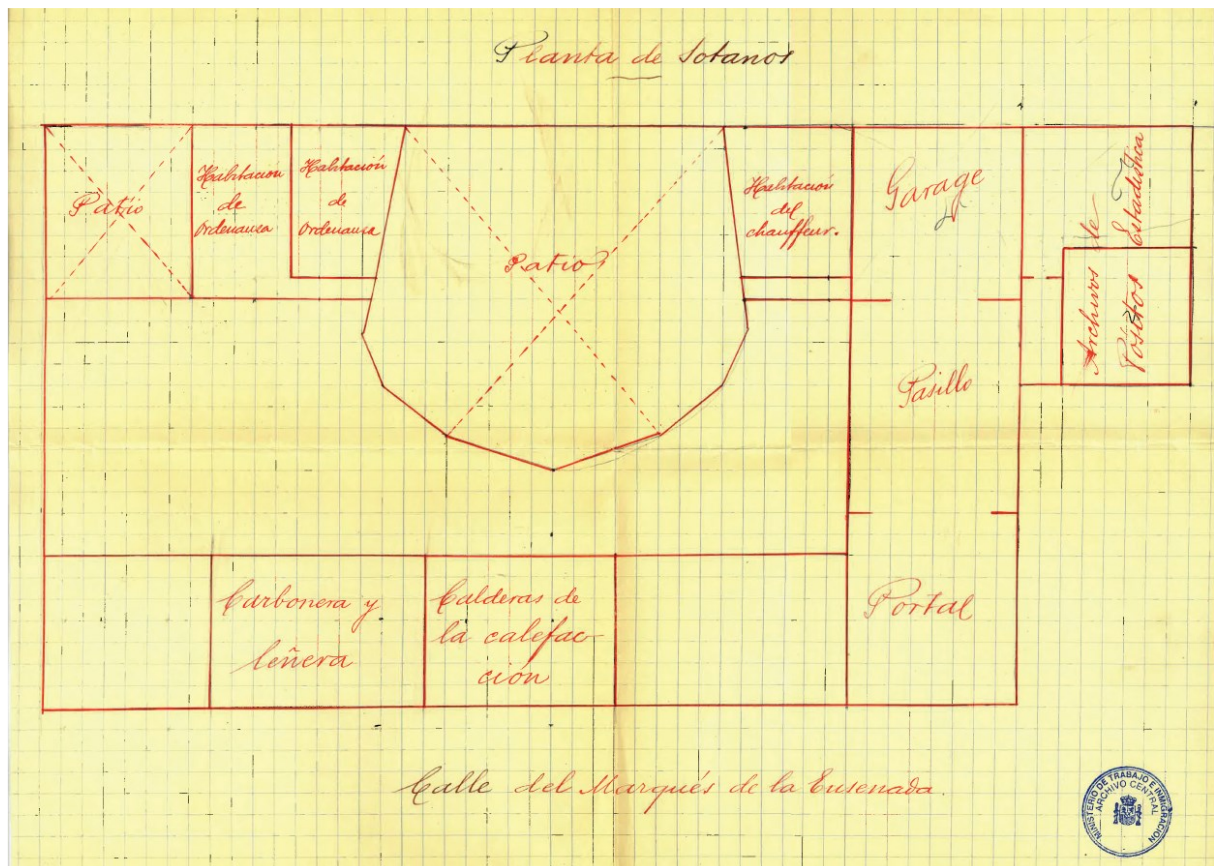 Planta de Sotanos
Patio
Habitación
de
Ordenanza
Habitación
de
Ordenanza
Patio
Habitación
del
chauffeur.
Garage
Archivos de
Estadística
Pósitos
Pasillo
Carbonera y
leñera
Calderas de
la calefac-
ción
Portal
Calle del Marqués de la Ensenada.
MINISTERIO DE TRABAJO E INMIGRACIÓN
ARCHIVO CENTRAL